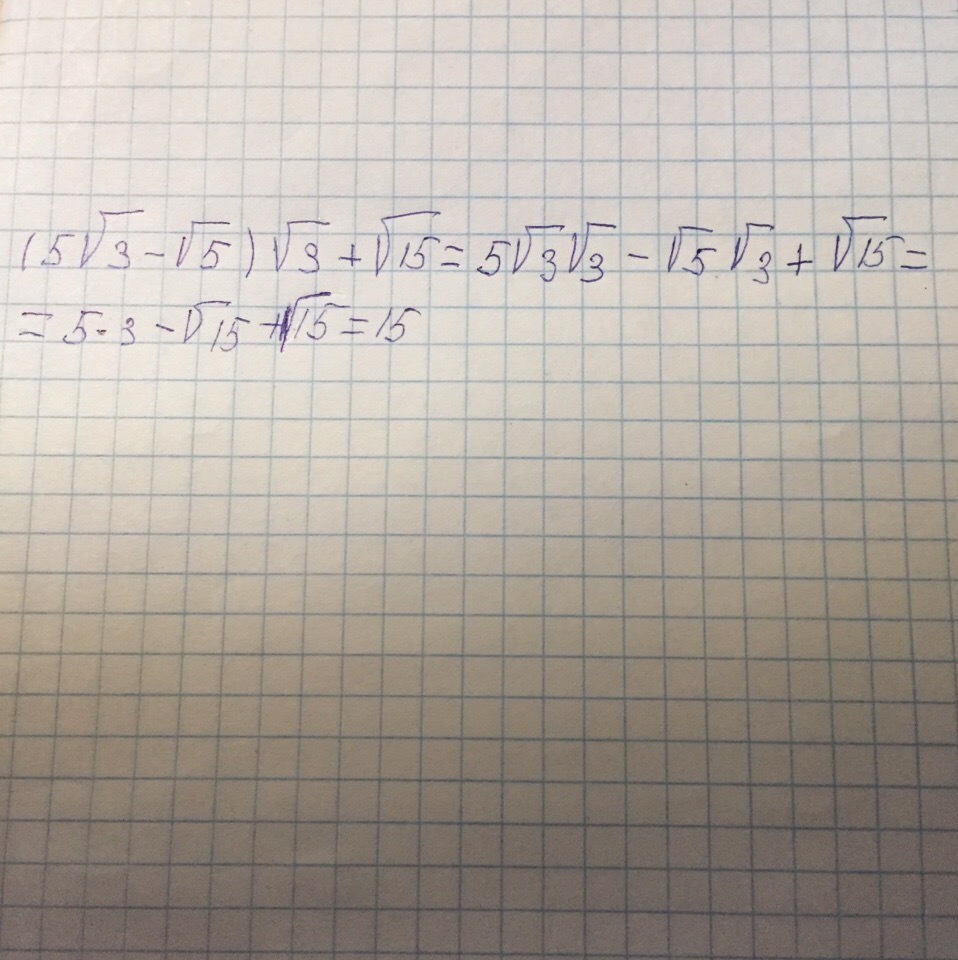 (5√3-√5)√3+√15=5√3√3-√5√3+√15=
=5·3-√15+√15=15